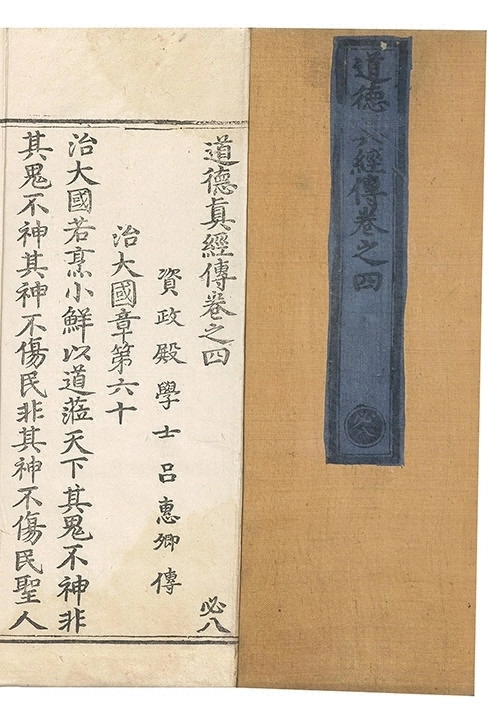 道德真經傳卷之四
必八
道德真經傳卷之四
必八
資政殿學士呂惠卿傳
治大國章第六十
治大國若烹小鮮以道蒞天下其鬼不神非
其鬼不神其神不傷民非其神不傷民聖人